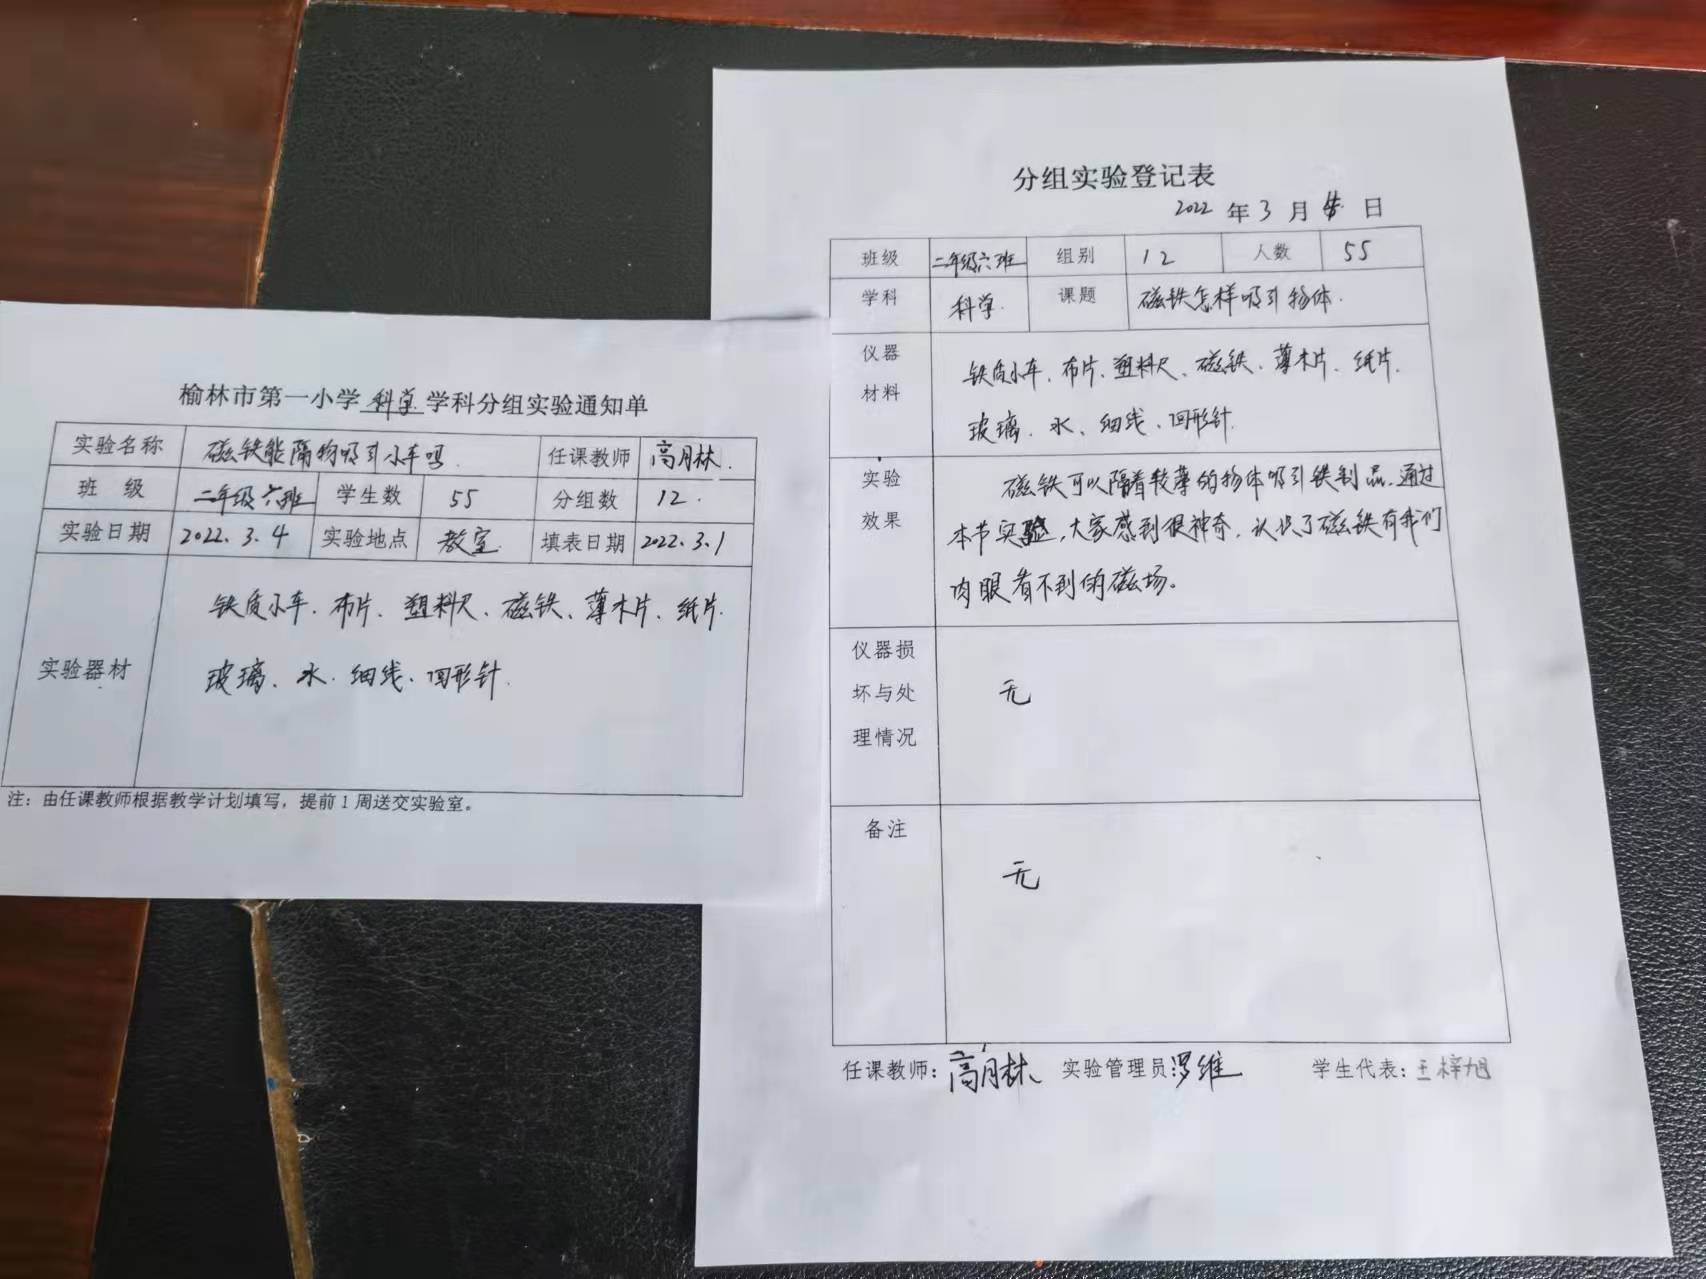 榆林市第一小学科学学科分组实验通知单
实验名称 磁铁能隔物吸引小车吗. 任课教师 高月林.
班 级 二年级六班 学生数 55 分组数 12.
实验日期 2022.3.4 实验地点 教室. 填表日期 2022.3.1
实验器材
铁质小车、布片、塑料尺、磁铁、薄木片、纸片.
玻璃、水、细线、回形针.
注：由任课教师根据教学计划填写，提前1周送交实验室。
分组实验登记表
2022 年 3 月 日
班级 二年级六班 组别 12 人数 55
学科 科学. 课题 磁铁怎样吸引物体.
仪器
材料
铁质小车、布片、塑料尺、磁铁、薄木片、纸片.
玻璃、水、细线、回形针.
实验
效果
磁铁可以隔着较薄的物体吸引铁制品.通过
本节实验,大家感到很神奇,认识了磁铁有我们
肉眼看不到的磁场。
仪器损
坏与处
理情况
无
备注
无
任课教师：高月林、 实验管理员罗维 学生代表：王梓旭